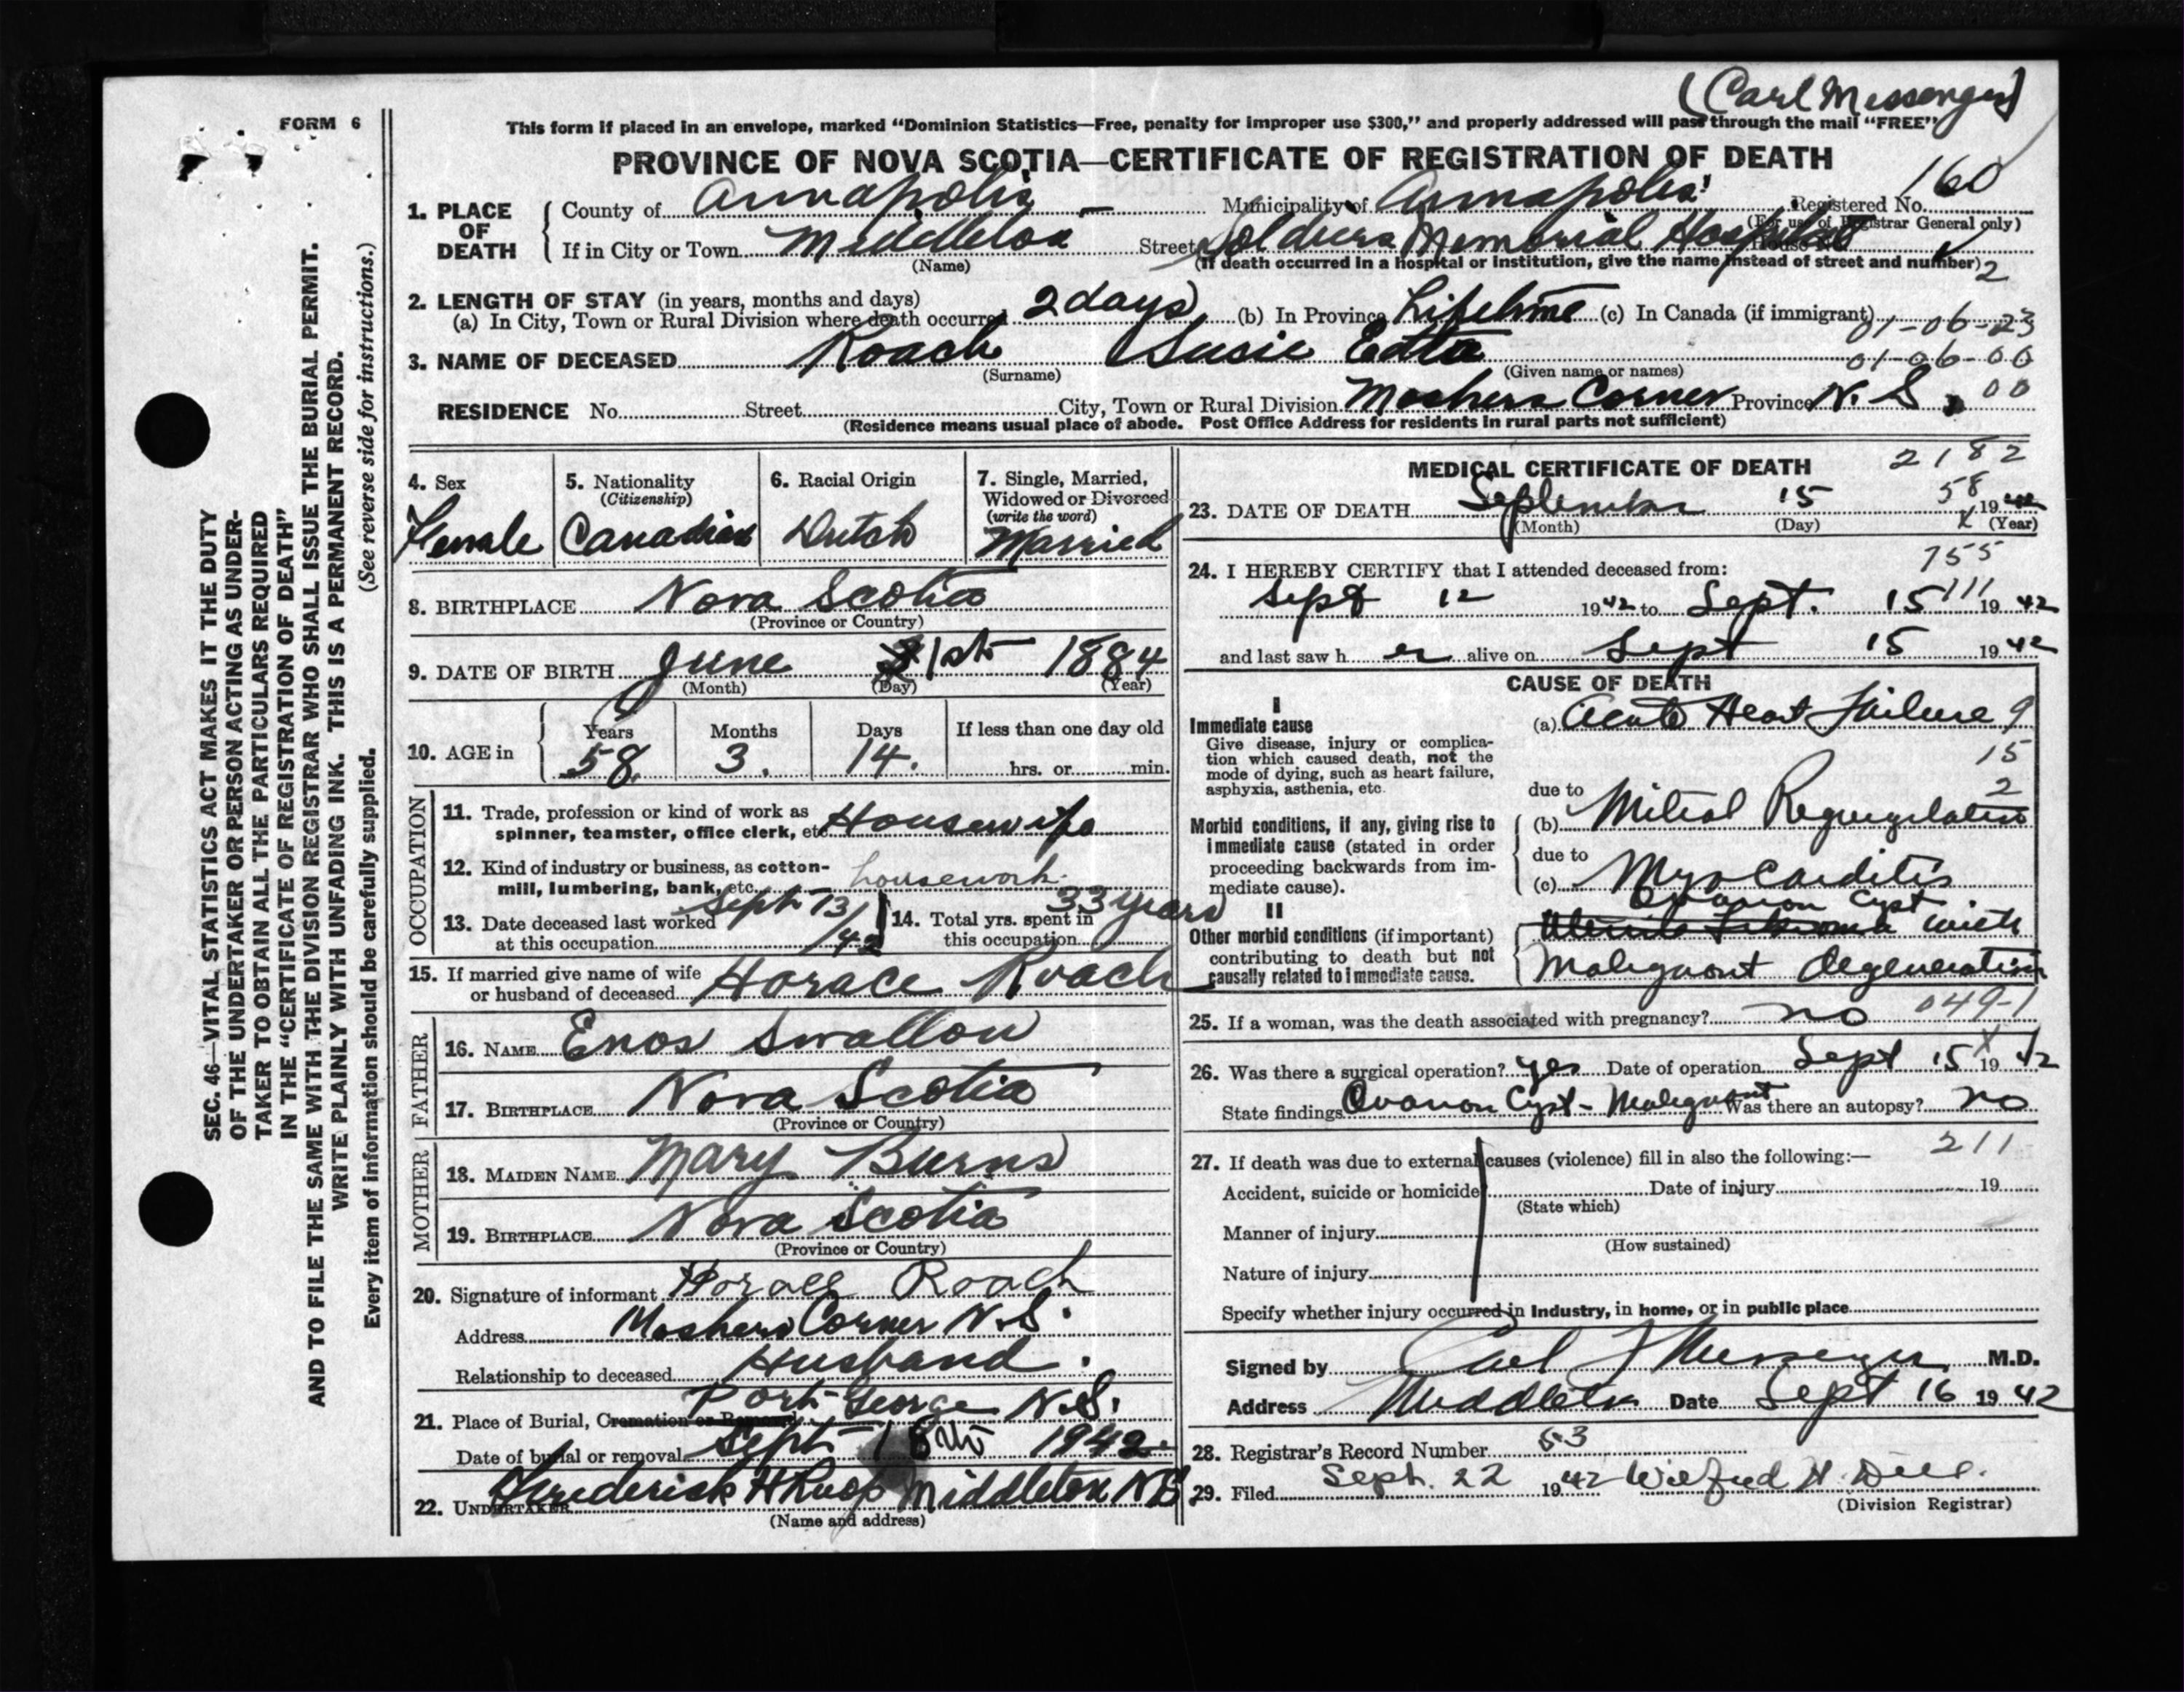 (Carl Messenger)
FORM 6
This form if placed in an envelope, marked "Dominion Statistics—Free, penalty for improper use $300," and properly addressed will pass through the mail "FREE"
PROVINCE OF NOVA SCOTIA—CERTIFICATE OF REGISTRATION OF DEATH
160
1. PLACE OF DEATH County of Annapolis Municipality of Annapolis Registered No.
(For use of Registrar General only)
If in City or Town Middleton Street Soldiers Memorial Hospital House No.
(Name) (If death occurred in a hospital or institution, give the name instead of street and number) 2
2. LENGTH OF STAY (in years, months and days)
(a) In City, Town or Rural Division where death occurred 2 days (b) In Province Lifetime (c) In Canada (if immigrant)
01-06-23
3. NAME OF DECEASED Roach Susie Etta 01-06-00
(Surname) (Given name or names)
RESIDENCE No. Street City, Town or Rural Division Moshers Corner Province N.S. 00
(Residence means usual place of abode. Post Office Address for residents in rural parts not sufficient)
4. Sex Female
5. Nationality (Citizenship) Canadian
6. Racial Origin Dutch
7. Single, Married, Widowed or Divorced (write the word) Married
8. BIRTHPLACE Nova Scotia
(Province or Country)
9. DATE OF BIRTH June 1st 1884
(Month) (Day) (Year)
10. AGE in Years 58. Months 3. Days 14. If less than one day old hrs. or min.
OCCUPATION
11. Trade, profession or kind of work as spinner, teamster, office clerk, etc. Housewife
12. Kind of industry or business, as cotton-mill, lumbering, bank, etc. housework
13. Date deceased last worked at this occupation Sept 13/42
14. Total yrs. spent in this occupation 33 years
15. If married give name of wife or husband of deceased Horace Roach
FATHER
16. NAME Enos Swallow
17. BIRTHPLACE Nova Scotia
(Province or Country)
MOTHER
18. MAIDEN NAME Mary Burns
19. BIRTHPLACE Nova Scotia
(Province or Country)
20. Signature of informant Horace Roach
Address Moshers Corner N.S.
Relationship to deceased Husband.
21. Place of Burial, Cremation or Removal Port George N.S.
Date of burial or removal Sept 18th 1942
22. UNDERTAKER Frederick H Roop Middleton NS
(Name and address)
MEDICAL CERTIFICATE OF DEATH 2182
58
23. DATE OF DEATH September 15 1942
(Month) (Day) (Year)
755
24. I HEREBY CERTIFY that I attended deceased from:
111
Sept 12 1942 to Sept. 15 1942
and last saw her alive on Sept 15 1942
CAUSE OF DEATH
I
Immediate cause
Give disease, injury or complication which caused death, not the mode of dying, such as heart failure, asphyxia, asthenia, etc.
(a) Acute Heart Failure 9
15
2
due to
(b) Mitral Regurgitation
due to
(c) Myocarditis
Morbid conditions, if any, giving rise to immediate cause (stated in order proceeding backwards from immediate cause).
II
Other morbid conditions (if important) contributing to death but not causally related to immediate cause.
Ovarian Cyst
with
Malignant degeneration
049-1
25. If a woman, was the death associated with pregnancy? no
26. Was there a surgical operation? yes Date of operation Sept 15 1942
State findings Ovarian Cyst - Malignant Was there an autopsy? no
211
27. If death was due to external causes (violence) fill in also the following:—
Accident, suicide or homicide Date of injury 19
(State which)
Manner of injury
(How sustained)
Nature of injury
Specify whether injury occurred in Industry, in home, or in public place
Signed by Carl Messenger M.D.
Address Middleton Date Sept 16 1942
28. Registrar's Record Number 53
29. Filed Sept. 22 1942 Wilfred H.
(Division Registrar)
SEC. 46—VITAL STATISTICS ACT MAKES IT THE DUTY
OF THE UNDERTAKER OR PERSON ACTING AS UNDER-
TAKER TO OBTAIN ALL THE PARTICULARS REQUIRED
IN THE "CERTIFICATE OF REGISTRATION OF DEATH"
AND TO FILE THE SAME WITH THE DIVISION REGISTRAR WHO SHALL ISSUE THE BURIAL PERMIT.
WRITE PLAINLY WITH UNFADING INK. THIS IS A PERMANENT RECORD.
Every item of information should be carefully supplied. (See reverse side for instructions.)